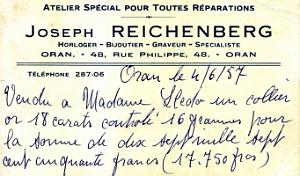 ATELIER SPÉCIAL POUR TOUTES RÉPARATIONS
JOSEPH REICHENBERG
HORLOGER - BIJOUTIER - GRAVEUR - SPÉCIALISTE
ORAN. - 48, RUE PHILIPPE, 48. - ORAN
TÉLÉPHONE 287-06 Oran le 4/6/57
Vendu a Madame Lledo un collier
or 18 carats controlé 16 grammes pour
la somme de dix sept mille sept
cent cinquante francs (17.750 frcs)